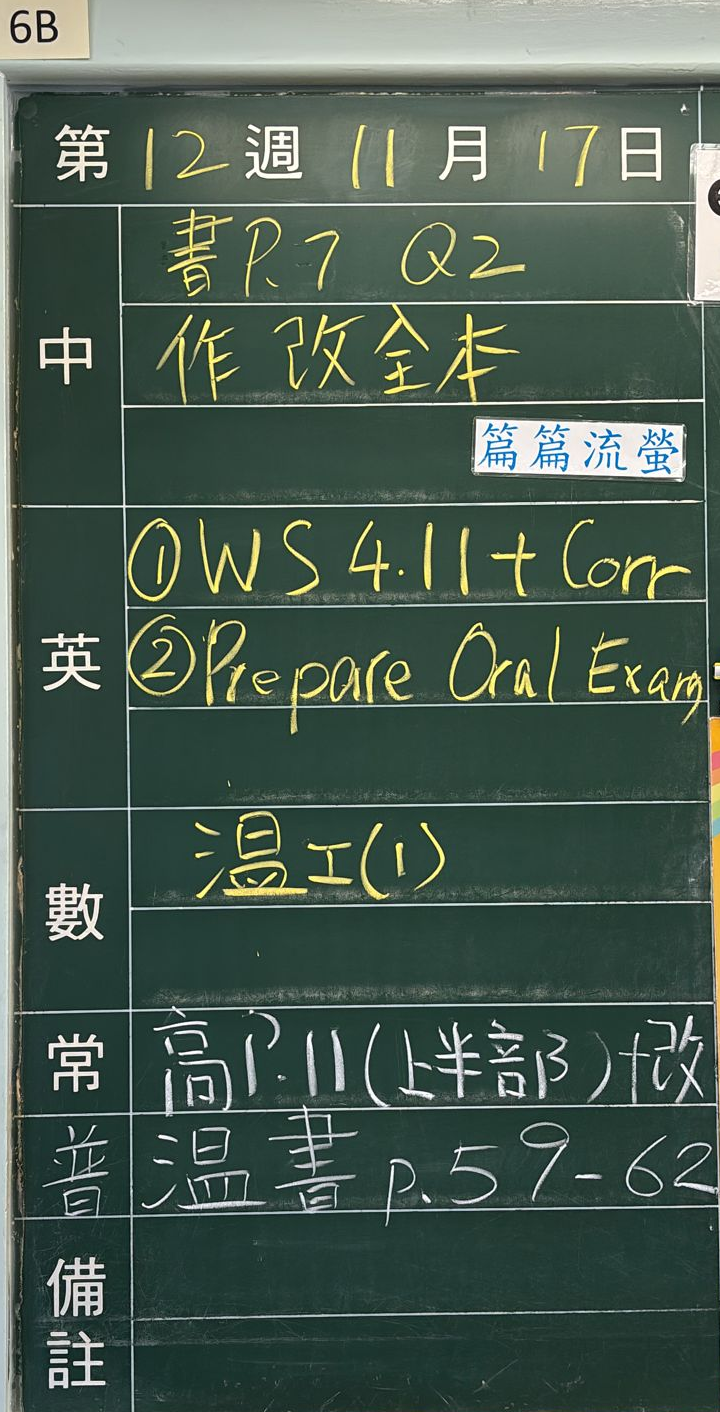 6B
第 12 週 11 月 17 日
中
書 P.7 Q2
作 改全本
篇篇流螢
英
①WS 4.11+ Corr
②Prepare Oral Exam
數
溫工(1)
常 高P.11(上半部)+改
普 溫書 p.59-62
備註